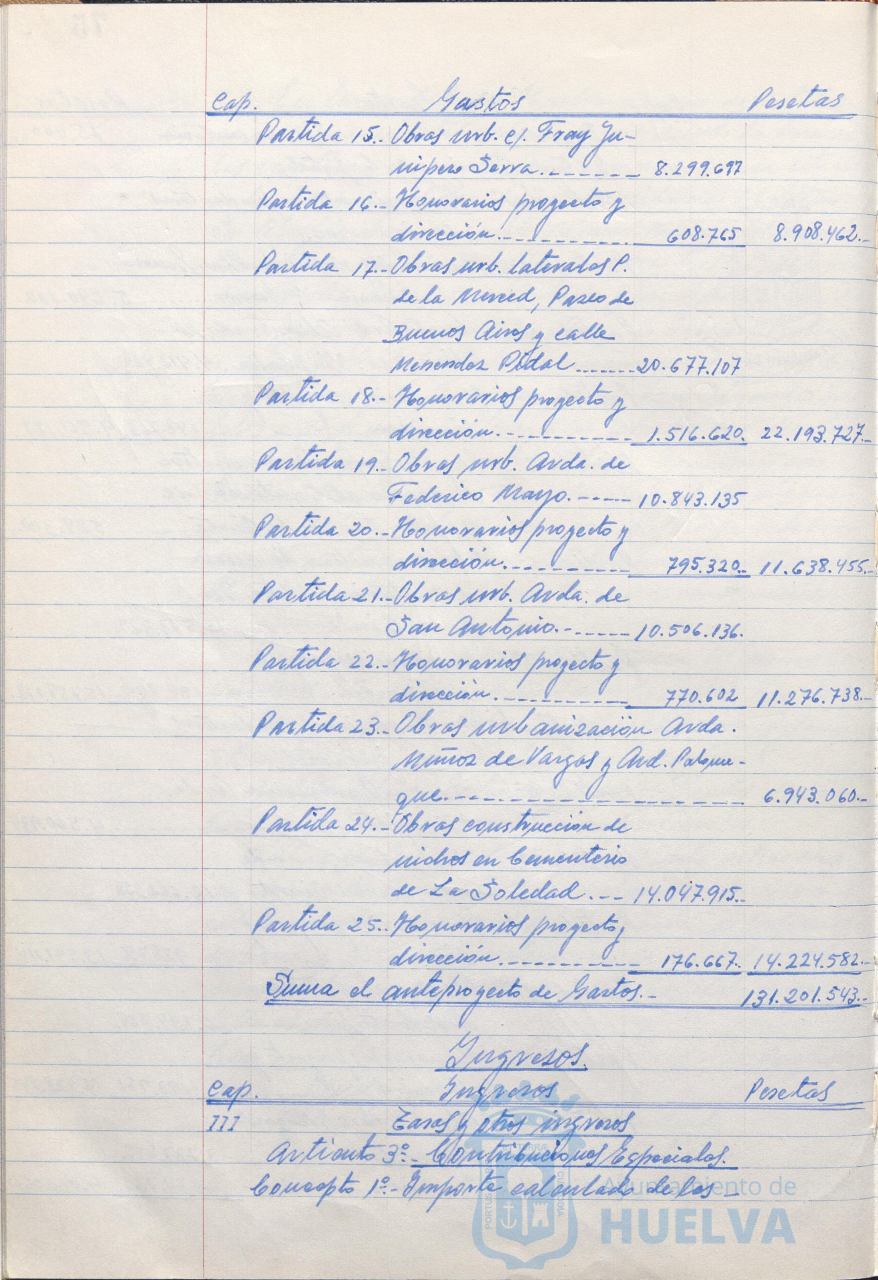 Cap. Gastos Pesetas
Partida 15.- Obras urb. c/. Fray Ju-
nipero Serra.------- 8.299.697
Partida 16.- Honorarios proyecto y
dirección.---------- 608.765 8.908.462.-
Partida 17.- Obras urb. laterales P.
de la Merced, Paseo de
Buenos Aires y calle
Menendez Pidal.------ 20.677.107
Partida 18.- Honorarios proyecto y
dirección.---------- 1.516.620. 22.193.727.-
Partida 19.- Obras urb. Avda. de
Federico Mayo.----- 10.843.135
Partida 20.- Honorarios proyecto y
dirección.---------- 795.320.- 11.638.455.-
Partida 21.- Obras urb. Avda. de
San Antonio.------- 10.506.136.
Partida 22.- Honorarios proyecto y
dirección.---------- 770.602 11.276.738.-
Partida 23.- Obras urbanización Avda.
Muñoz de Vargas y Avd. Palome-
que.------------------- 6.943.060.-
Partida 24.- Obras construcción de
nichos en Cementerio
de La Soledad.--- 14.047.915.-
Partida 25.- Honorarios proyecto y
dirección.---------- 176.667.- 14.224.582.-
Suma el anteproyecto de Gastos.- 131.201.543.-
Ingresos.
Cap. Ingresos Pesetas
III Tasas y otros ingresos
Artículo 3º.- Contribuciones Especiales.
Concepto 1º.- Importe calculado de las -
Ayuntamiento de
HUELVA